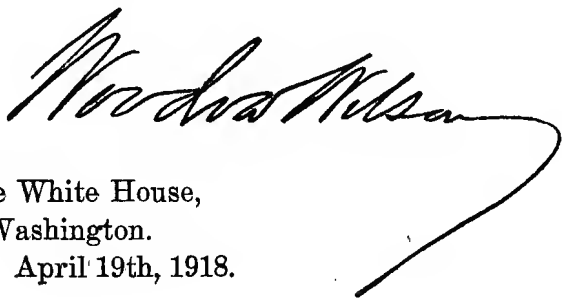 Woodrow Wilson
e White House,
Washington.
April 19th, 1918.